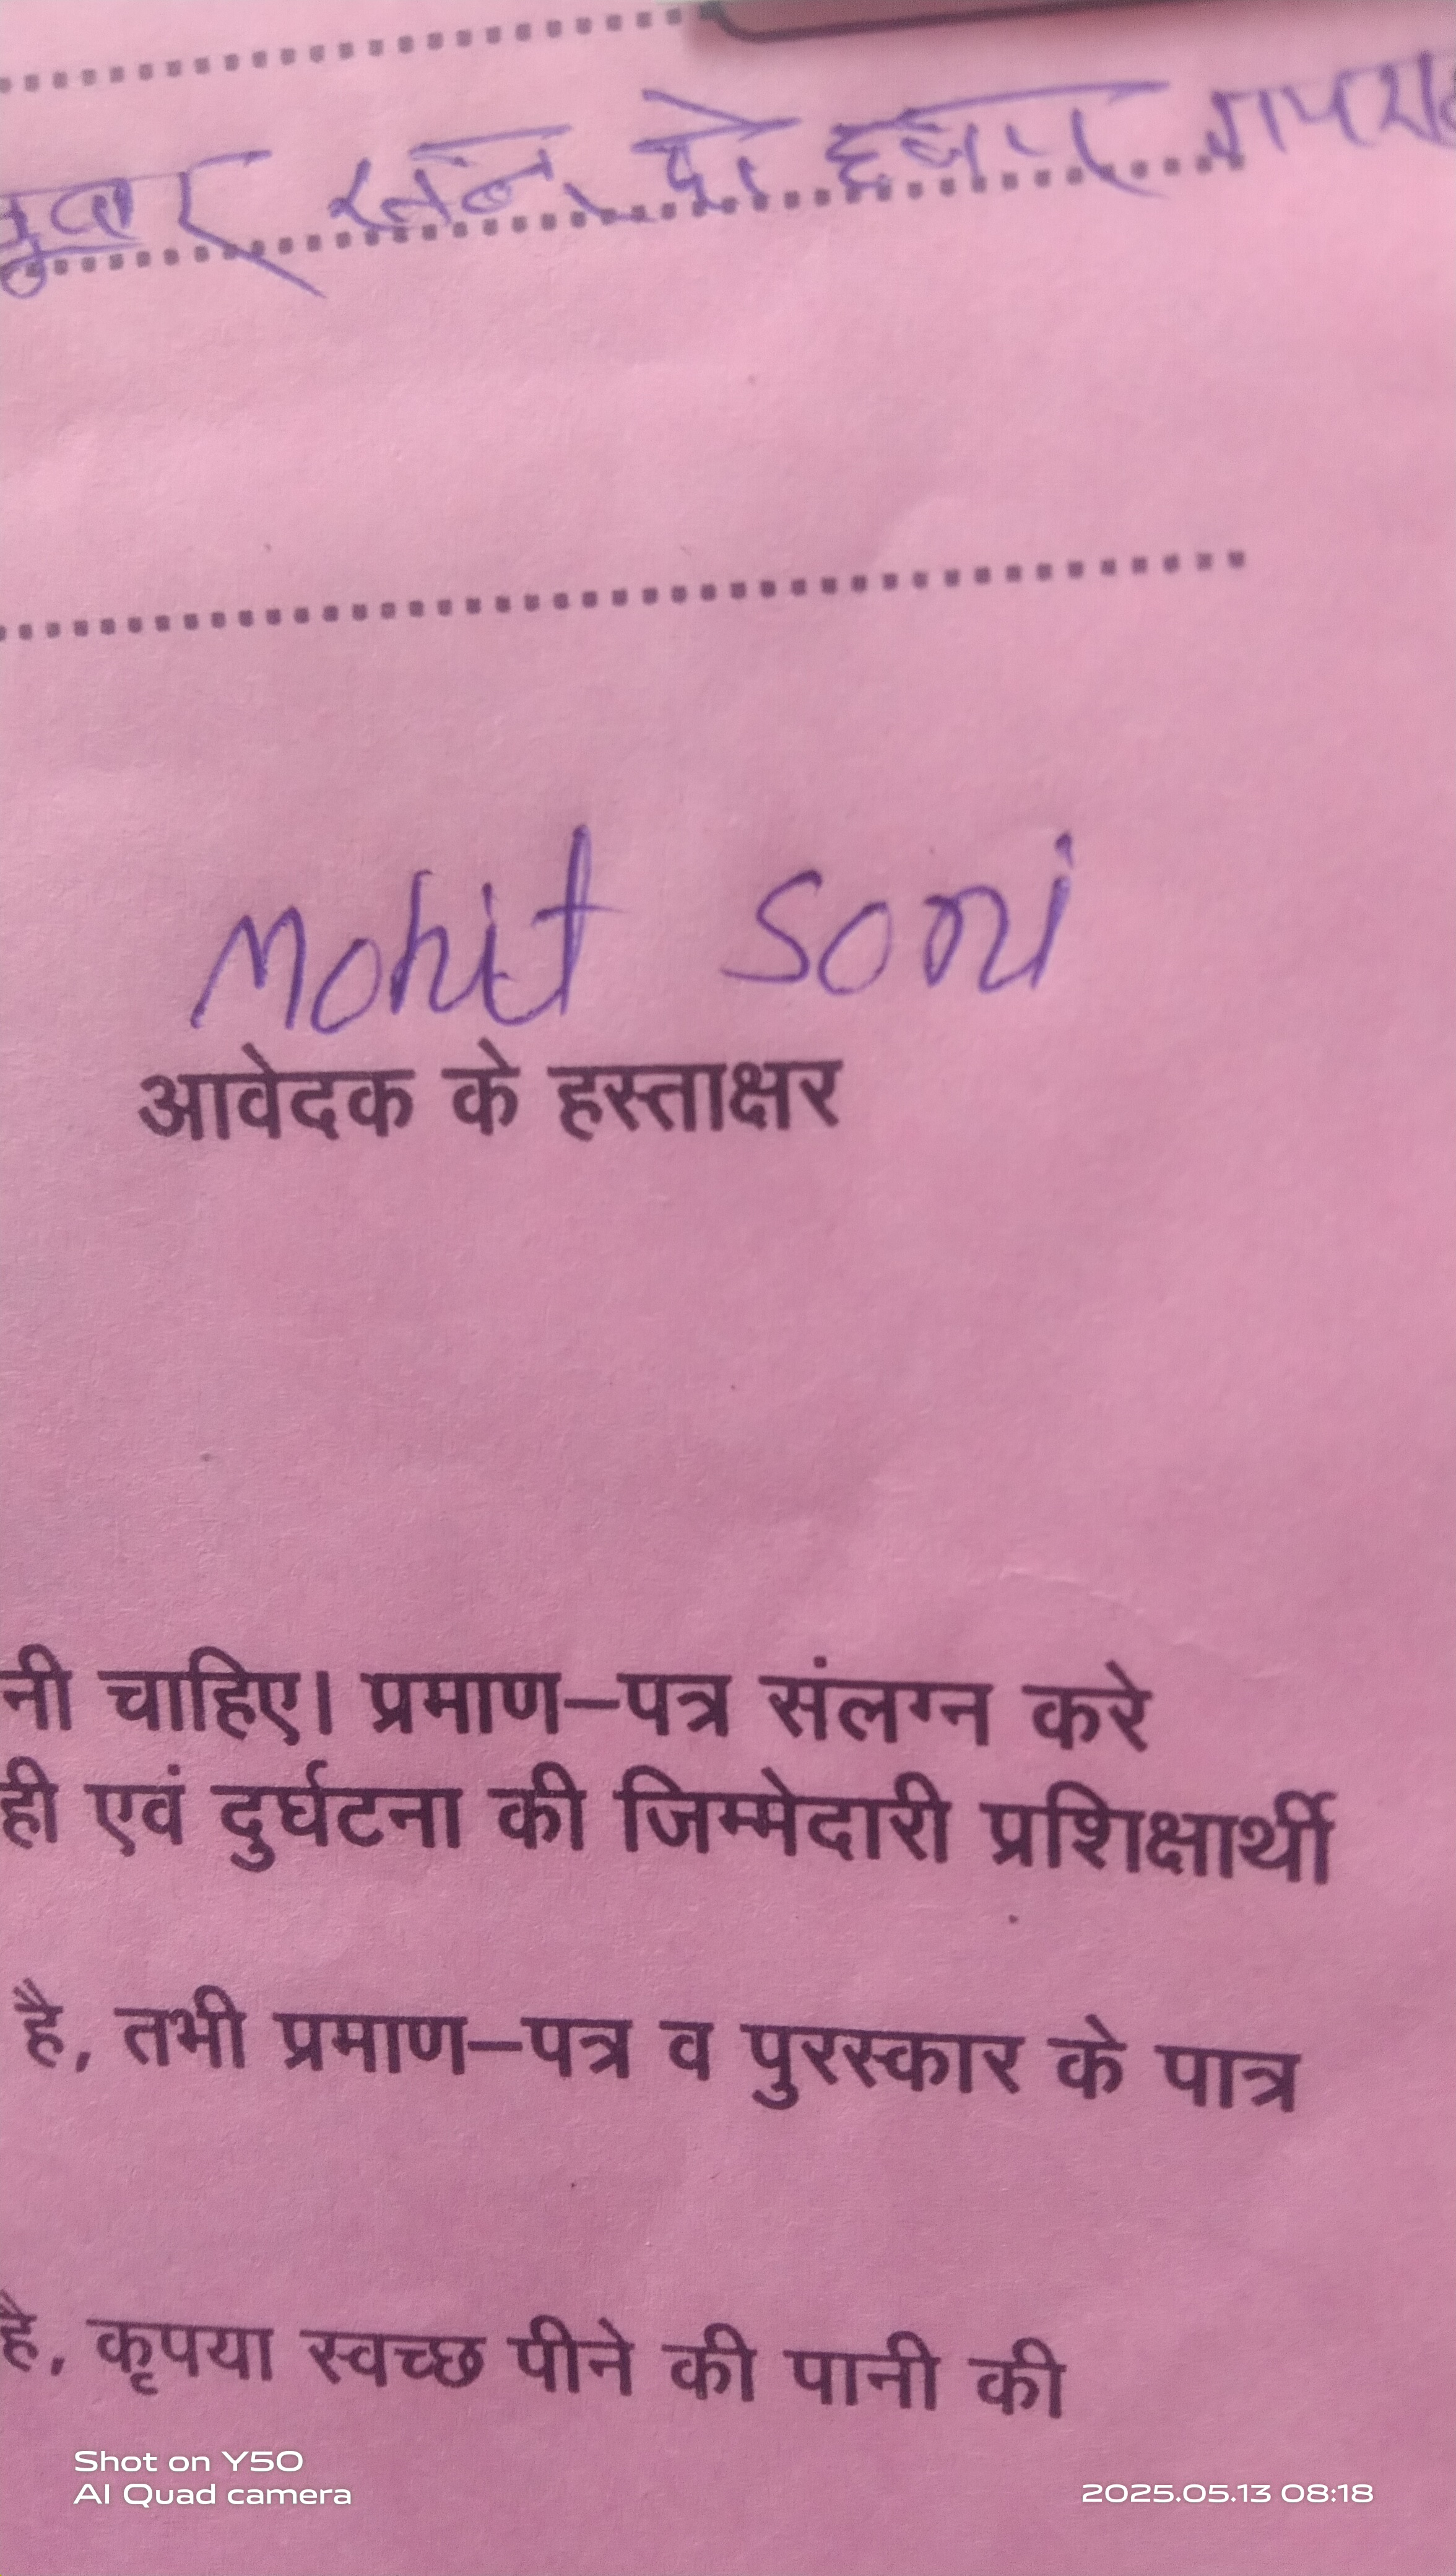 Mohit Soni
आवेदक के हस्ताक्षर
नी चाहिए। प्रमाण–पत्र संलग्न करे
ही एवं दुर्घटना की जिम्मेदारी प्रशिक्षार्थी
है, तभी प्रमाण–पत्र व पुरस्कार के पात्र
है, कृपया स्वच्छ पीने की पानी की
Shot on Y50
AI Quad camera
2025.05.13 08:18